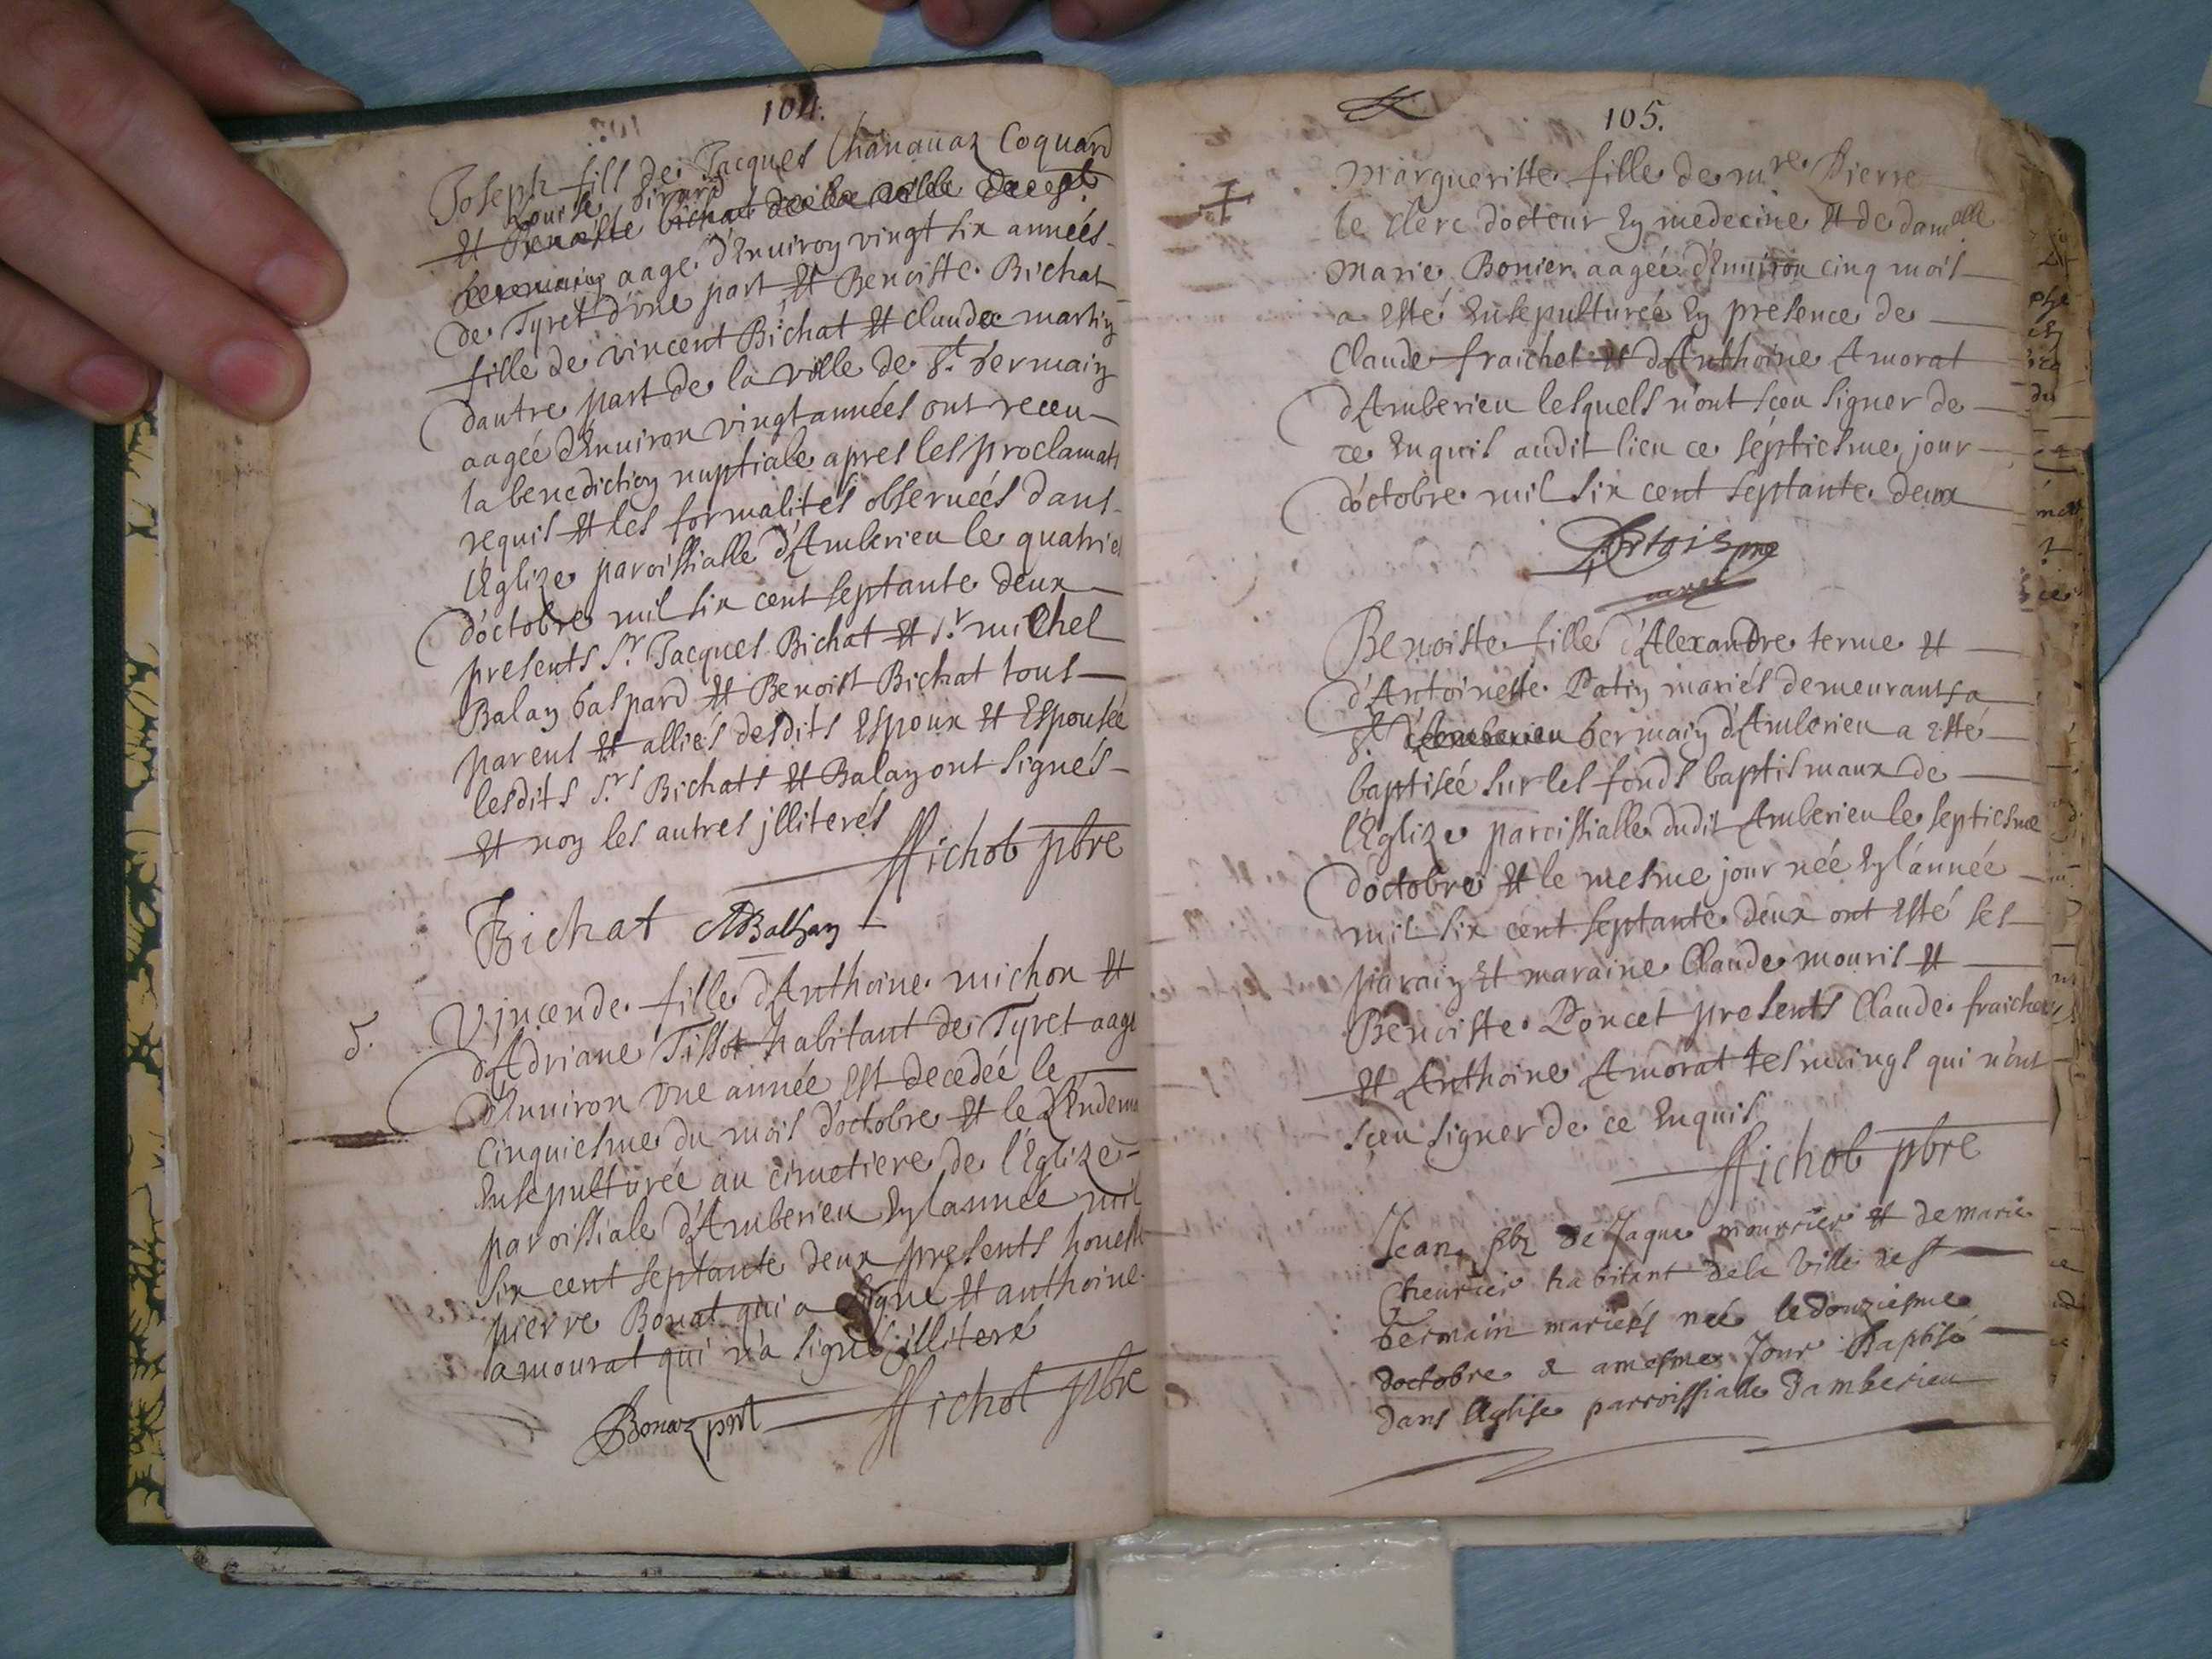 104.
Joseph fils de Jacques Chanauaz Coquard
Louise Girard
et Benoiste Bichat de la ville de st
Germain aage d'Enuiron vingt six années
de Tyret d'une part et Benoiste Bichat
fille de vincent Bichat et claudee martin
dautre part de la ville de st. Germain
aagée d'Enuiron vingt années ont receu
la benediction nuptiale apres les proclamats
requis et les formalités obseruées dans
l'Eglize paroissialle d'Amberieu le quatrie
d'octobre mil six cent septante deux
presents sr. Jacques Bichat et sr. michel
Balay Gaspard et Benoist Bichat tous
parens et alliés desdits Espoux et Espousée
lesdits srs. Bichats et Balay ont signés
et non les autres jlliterés
Michot pbre
Bichat Balhay
5.
Vincende fille d'Anthoine michon et
d'Adriane Tissot habitant de Tyret aage
d'Enuiron vne année Est decedée le
cinquiesme du mois d'octobre et le l'Endema
Ensepulturée au cimetiere de l'Eglize
paroissiale d'Amberieu En l'année mil
six cent septante deux presents honeste
pierre Bonat qui a signé et anthoine
amourat qui n'a signé illiteré
Bonaz pnt Michot pbre
105.
Margueritte fille de mre. Pierre
le clerc docteur En medecine et de damelle
marie Bonier aagée d'Enuiron cinq mois
a Esté Ensepulturée En presence de
Claude fraichet et d'Anthoine Amorat
d'Amberieu lesquels n'ont sceu signer de
ce Enquis audit lieu ce séptiesme jour
d'octobre mil six cent septante deux
Benoiste fille d'Alexandre terme et
d'Antoinette Patin mariés demeurants a
st. d'Amberieu Germain d'Amberieu a Esté
baptisée sur les fonds baptismaux de
l'Eglize paroissialle dudit Amberieu le septiesme
d'octobre et le mesme jour née En l'année
mil six cent septante deux ont Esté ses
parain et maraine Claude mouris et
Benoiste Poncet presents Claude fraichet
et Anthoine Amorat tesmoings qui n'ont
sceu signer de ce Enquis
Michot pbre
Jean filz de Jaque mourrier et de marie
habitant de la ville de st
Germain mariés née le douziesme
doctobre & a mesme Jour Baptisé
dans l'Eglise parroissialle d'amberieu